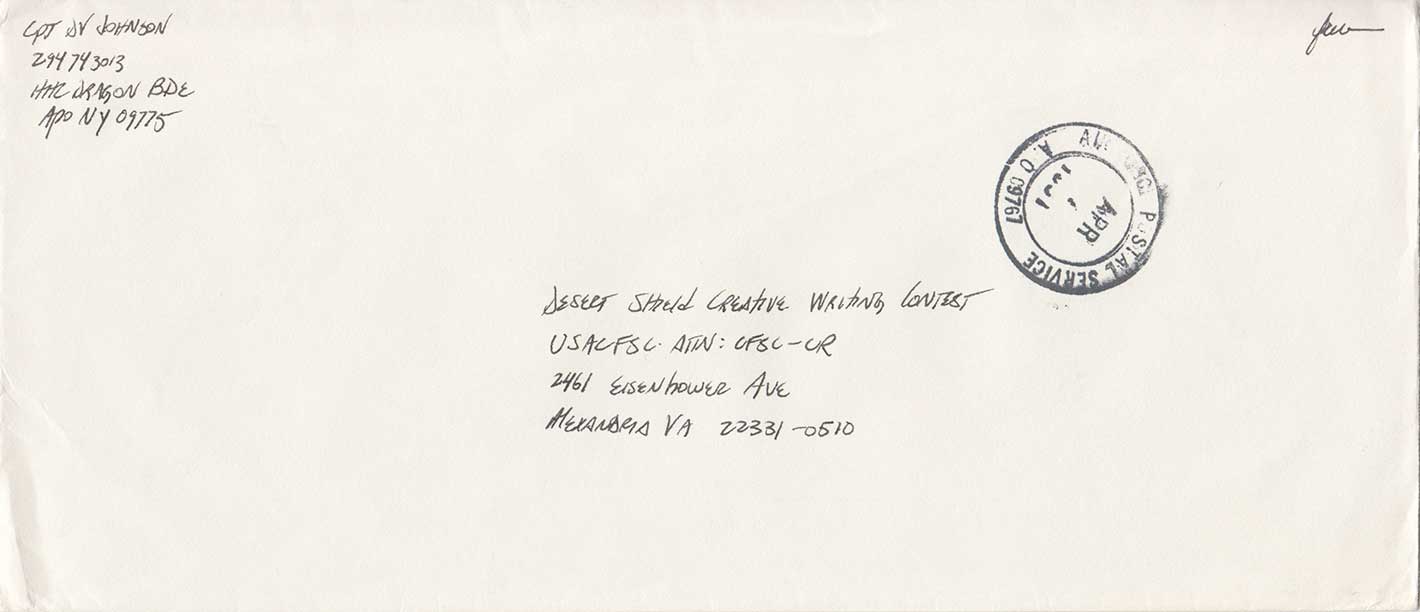 CPT DV JOHNSON
294743013
HHC DRAGON BDE
APO NY 09775
POSTAL SERVICE
09767
APR
1991
DESERT SHIELD CREATIVE WRITING CONTEST
USACFSC. ATTN: CFSC-CR
2461 EISENHOWER AVE
ALEXANDRIA VA 22331-0510